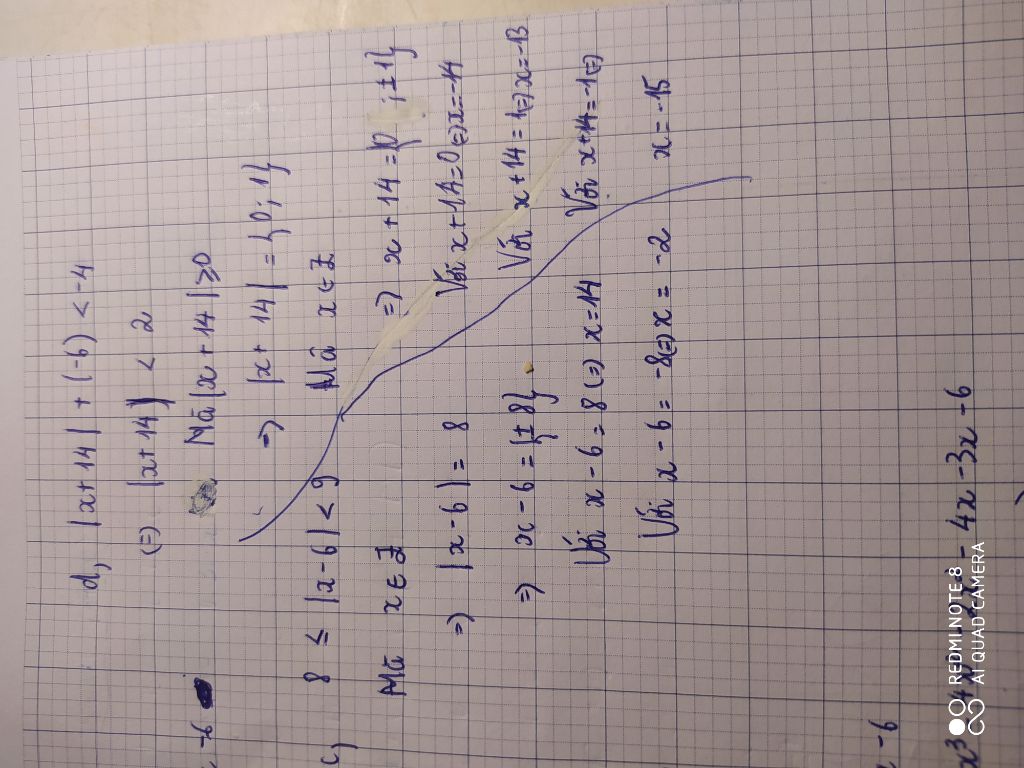 d, |x+14| + (-6) < -4
(=) |x+14| < 2
Mà |x+14| ≥0
=) |x+14| = {0; 1}
Mà x ∈ Z
=) x+14 = {0 ; ±1}
Với x+14=0(=)x=-14
Với x+14=1(=)x=-13
Với x+14=-1(=)
x=-15
-6
c) 8 ≤ |x-6| < 9
Mà x ∈ Z
=) |x-6| = 8
=) x-6={±8}
Với x-6=8(=) x=14
Với x-6= -8(=)x= -2
-6
- 4x -3x -6
REDMI NOTE 8
AI QUAD CAMERA